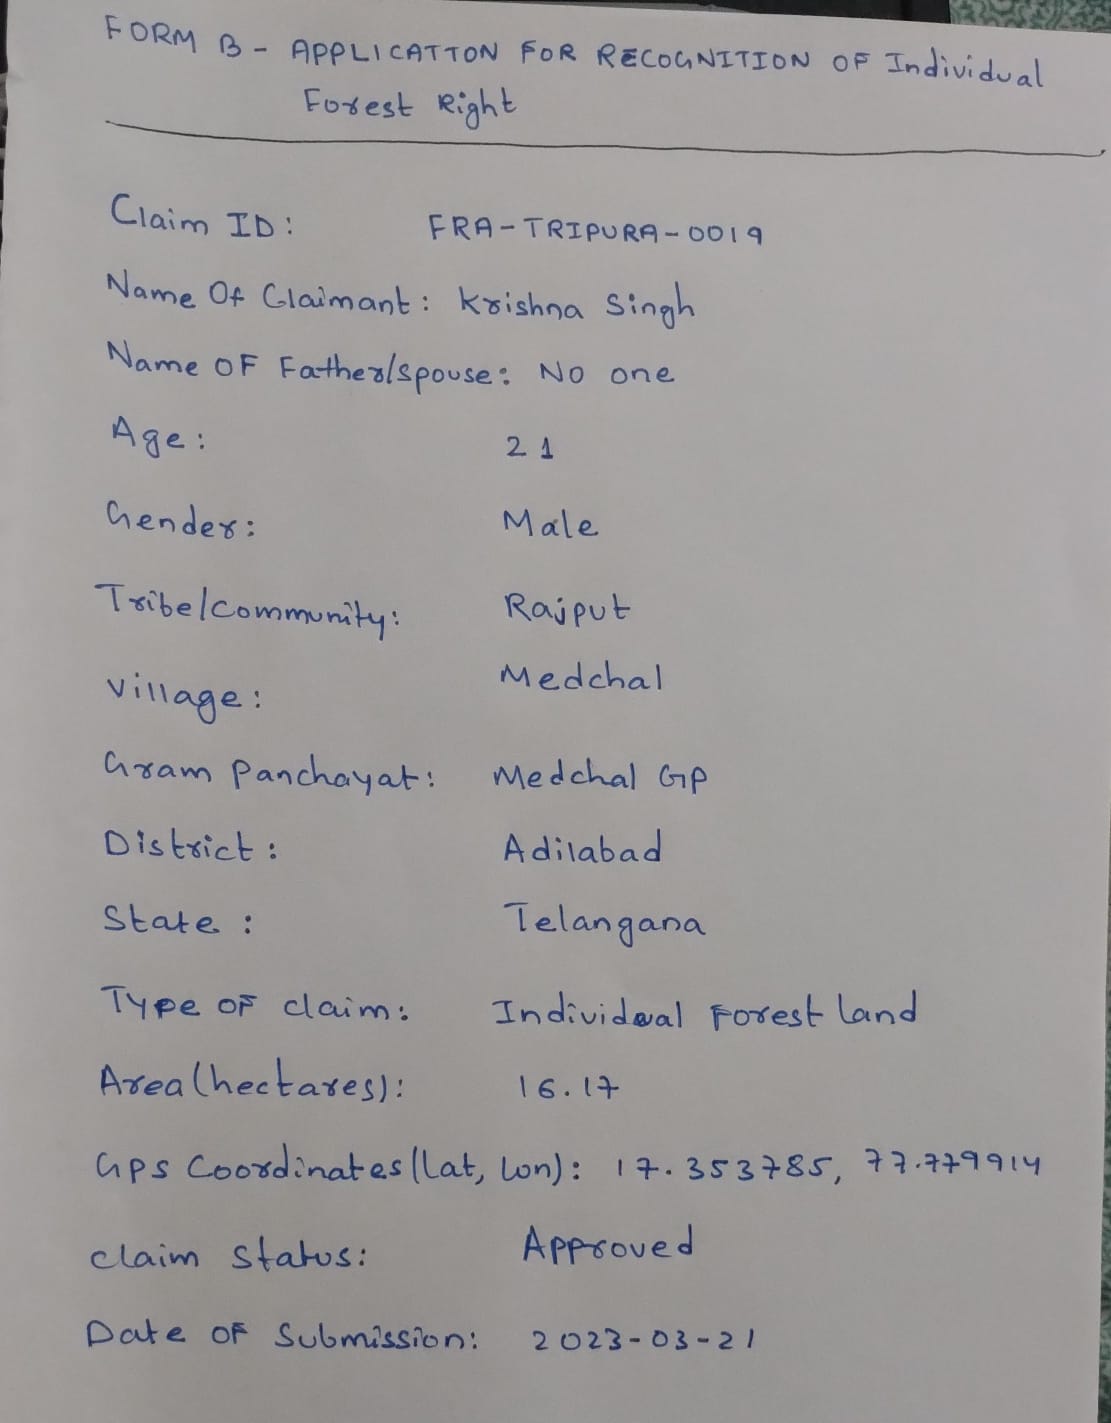 FORM B - APPLICATION FOR RECOGNITION OF Individual
Forest Right
Claim ID: FRA-TRIPURA-0019
Name Of Claimant: Krishna Singh
Name OF Father/spouse: No one
Age: 21
Gender: Male
Tribe/community: Rajput
Village: Medchal
Gram Panchayat: Medchal GP
District: Adilabad
State: Telangana
Type OF claim: Individual Forest land
Area(hectares): 16.17
GPS Coordinates(lat, lon): 17.353785, 77.779914
claim status: Approved
Date OF Submission: 2023-03-21